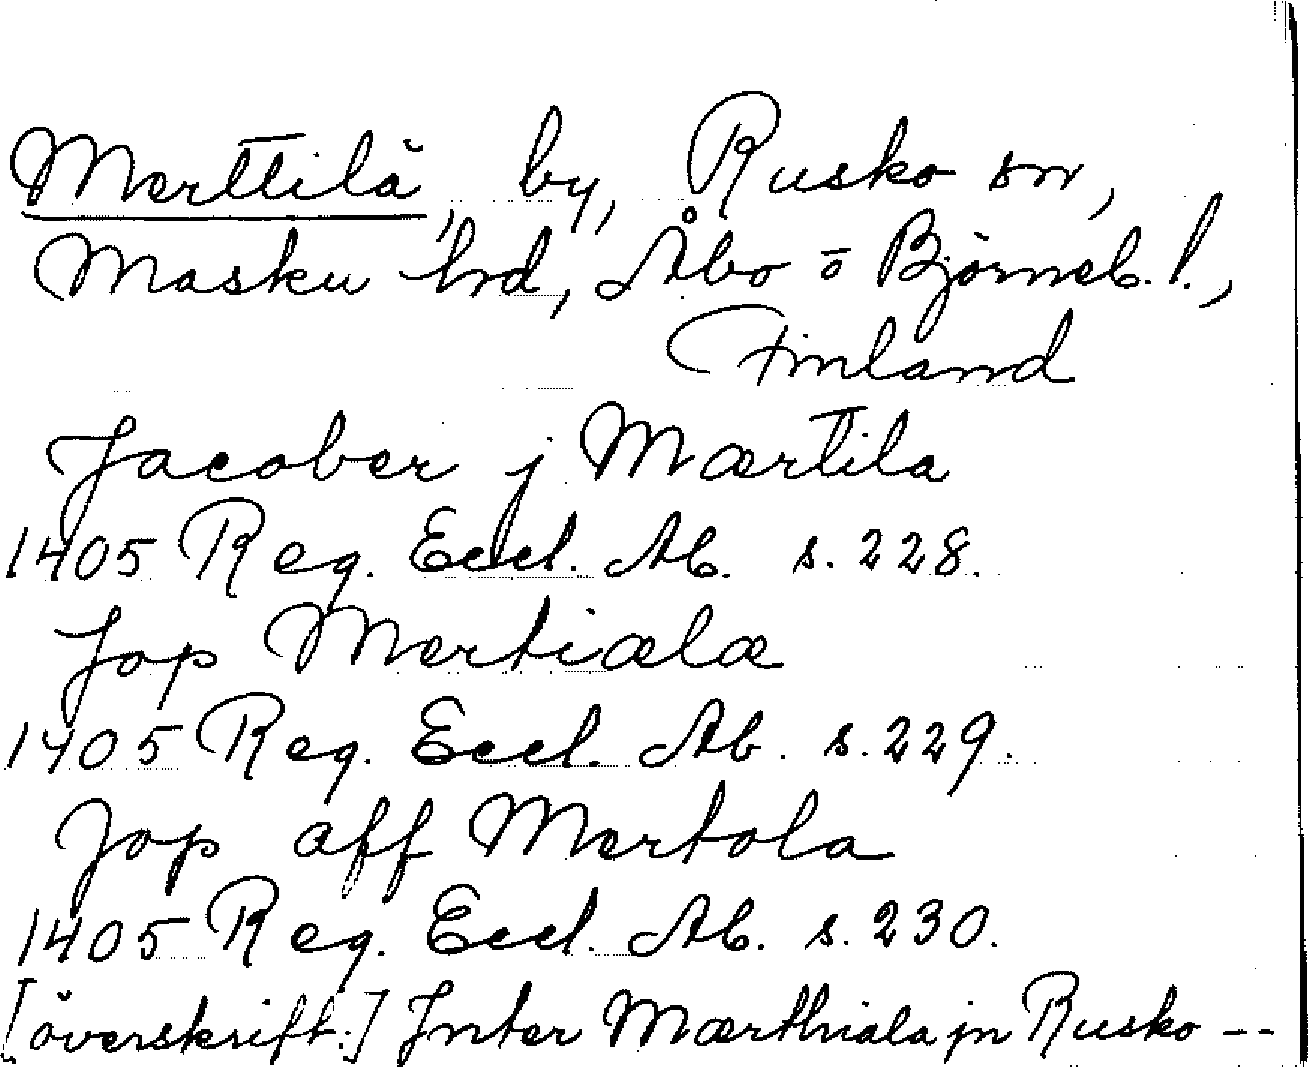 Merttilä, by, Rusko sn,
Masku hd, Åbo o Björneb. l.,
Finland
Jacober j Mærtila
1405 Reg. Eccl. Ab. s. 228.
Jop Mertiælæ
1405 Reg. Eccl. Ab. s. 229.
Jop aff Mertola
1405 Reg. Eccl. Ab. s. 230.
[överskrift:] Inter Mærthiala jn Rusko --